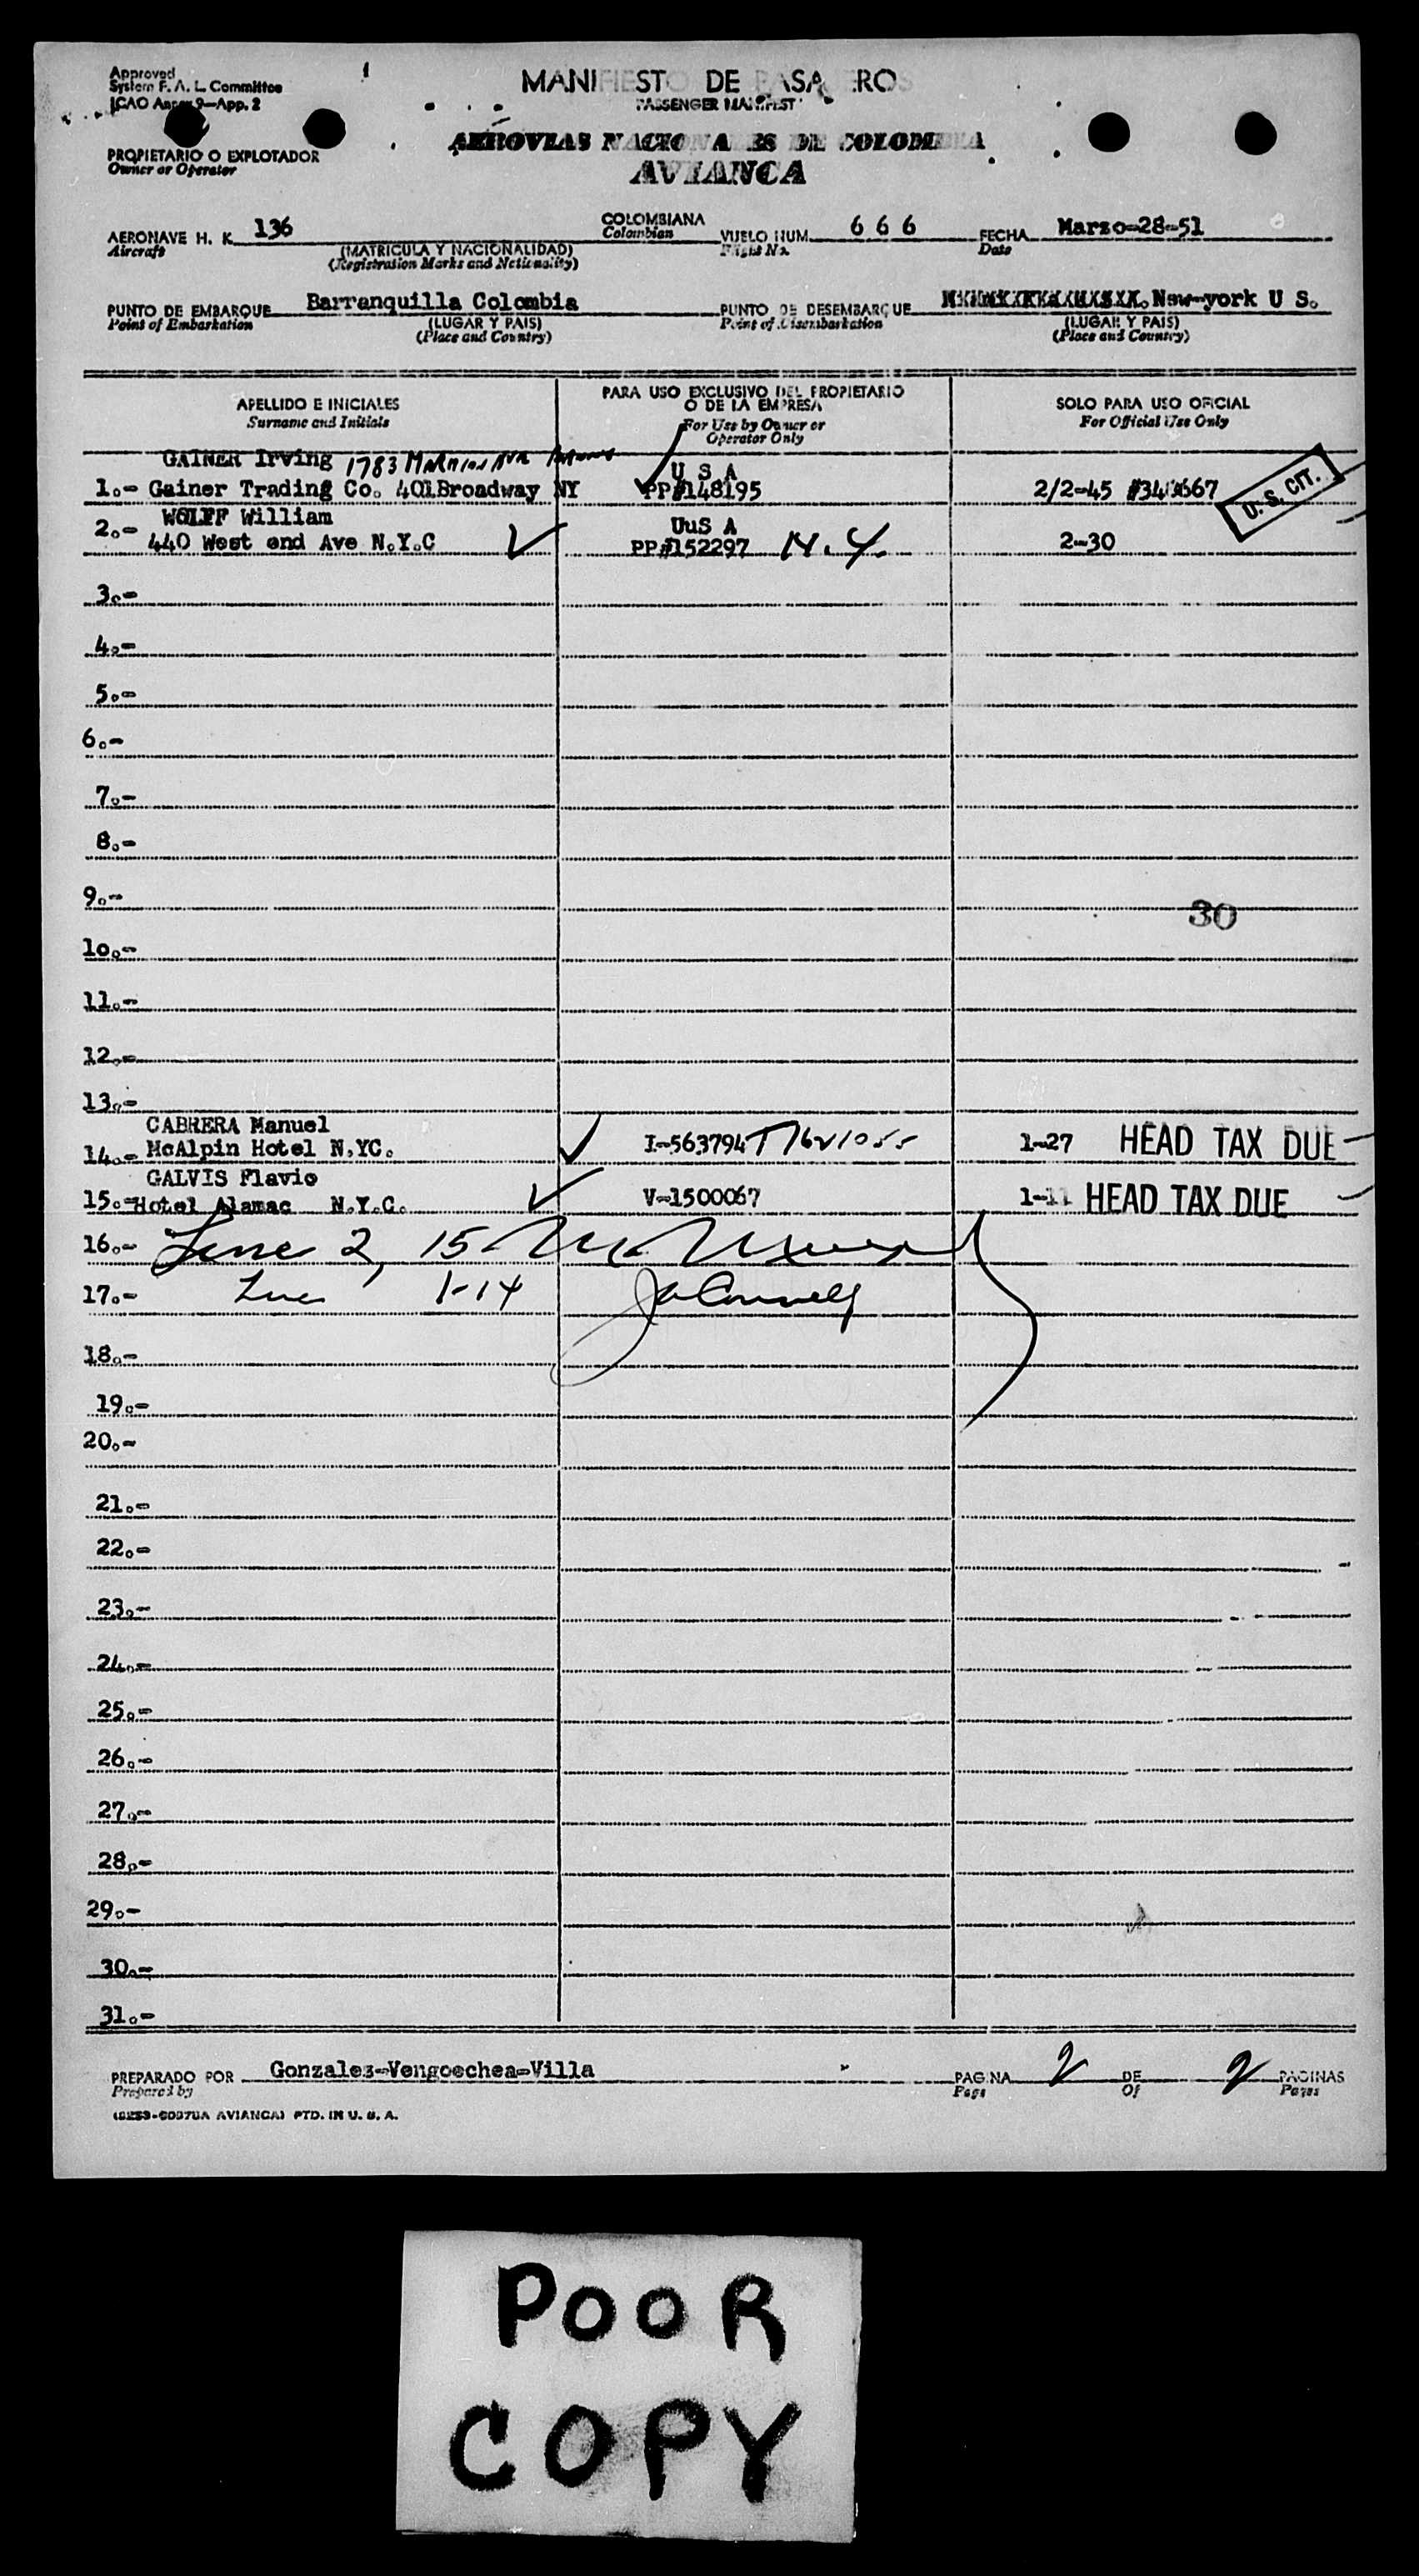 Approved
System F. A. L. Committee
ICAO Annex 9—App. 2
MANIFIESTO DE PASAJEROS
PASSENGER MANIFEST
AEROVIAS NACIONALES DE COLOMBIA
AVIANCA
PROPIETARIO O EXPLOTADOR
Owner or Operator
AERONAVE H. K. 136 COLOMBIANA VUELO NUM. 6 6 6 FECHA Marzo-28-51
Aircraft Colombian Flight No. Date
(MATRICULA Y NACIONALIDAD)
(Registration Marks and Nationality)
PUNTO DE EMBARQUE Barranquilla Colombia PUNTO DE DESEMBARQUE New-york U S.
Point of Embarkation (LUGAR Y PAIS) Point of Disembarkation (LUGAR Y PAIS)
(Place and Country) (Place and Country)
APELLIDO E INICIALES PARA USO EXCLUSIVO DEL PROPIETARIO O DE LA EMPRESA SOLO PARA USO OFICIAL
Surname and Initials For Use by Owner or Operator Only For Official Use Only
GAINER Irving 1783 U S A
1.- Gainer Trading Co. 401Broadway NY PP#148195 2/2-45 U. S. CIT.
WOLFF William UuS A
2.- 440 West end Ave N.Y.C PP#152297 N.Y. 2-30
3.-
4.-
5.-
6.-
7.-
8.-
9.-
30
10.-
11.-
12.-
13.-
CABRERA Manuel
14.- McAlpin Hotel N.YC. I-563794 1-27 HEAD TAX DUE
GALVIS Flavio
15.- Hotel Alamac N.Y.C. V-1500067 1-11 HEAD TAX DUE
16.- Line 2, 15
17.- Line 1-14
18.-
19.-
20.-
21.-
22.-
23.-
24.-
25.-
26.-
27.-
28.-
29.-
30.-
31.-
PREPARADO POR Gonzalez-Vengoechea-Villa PAGINA 2 DE 2 PAGINAS
Prepared by Page Of Pages
AVIANCA) PTD. IN U. S. A.
POOR
COPY